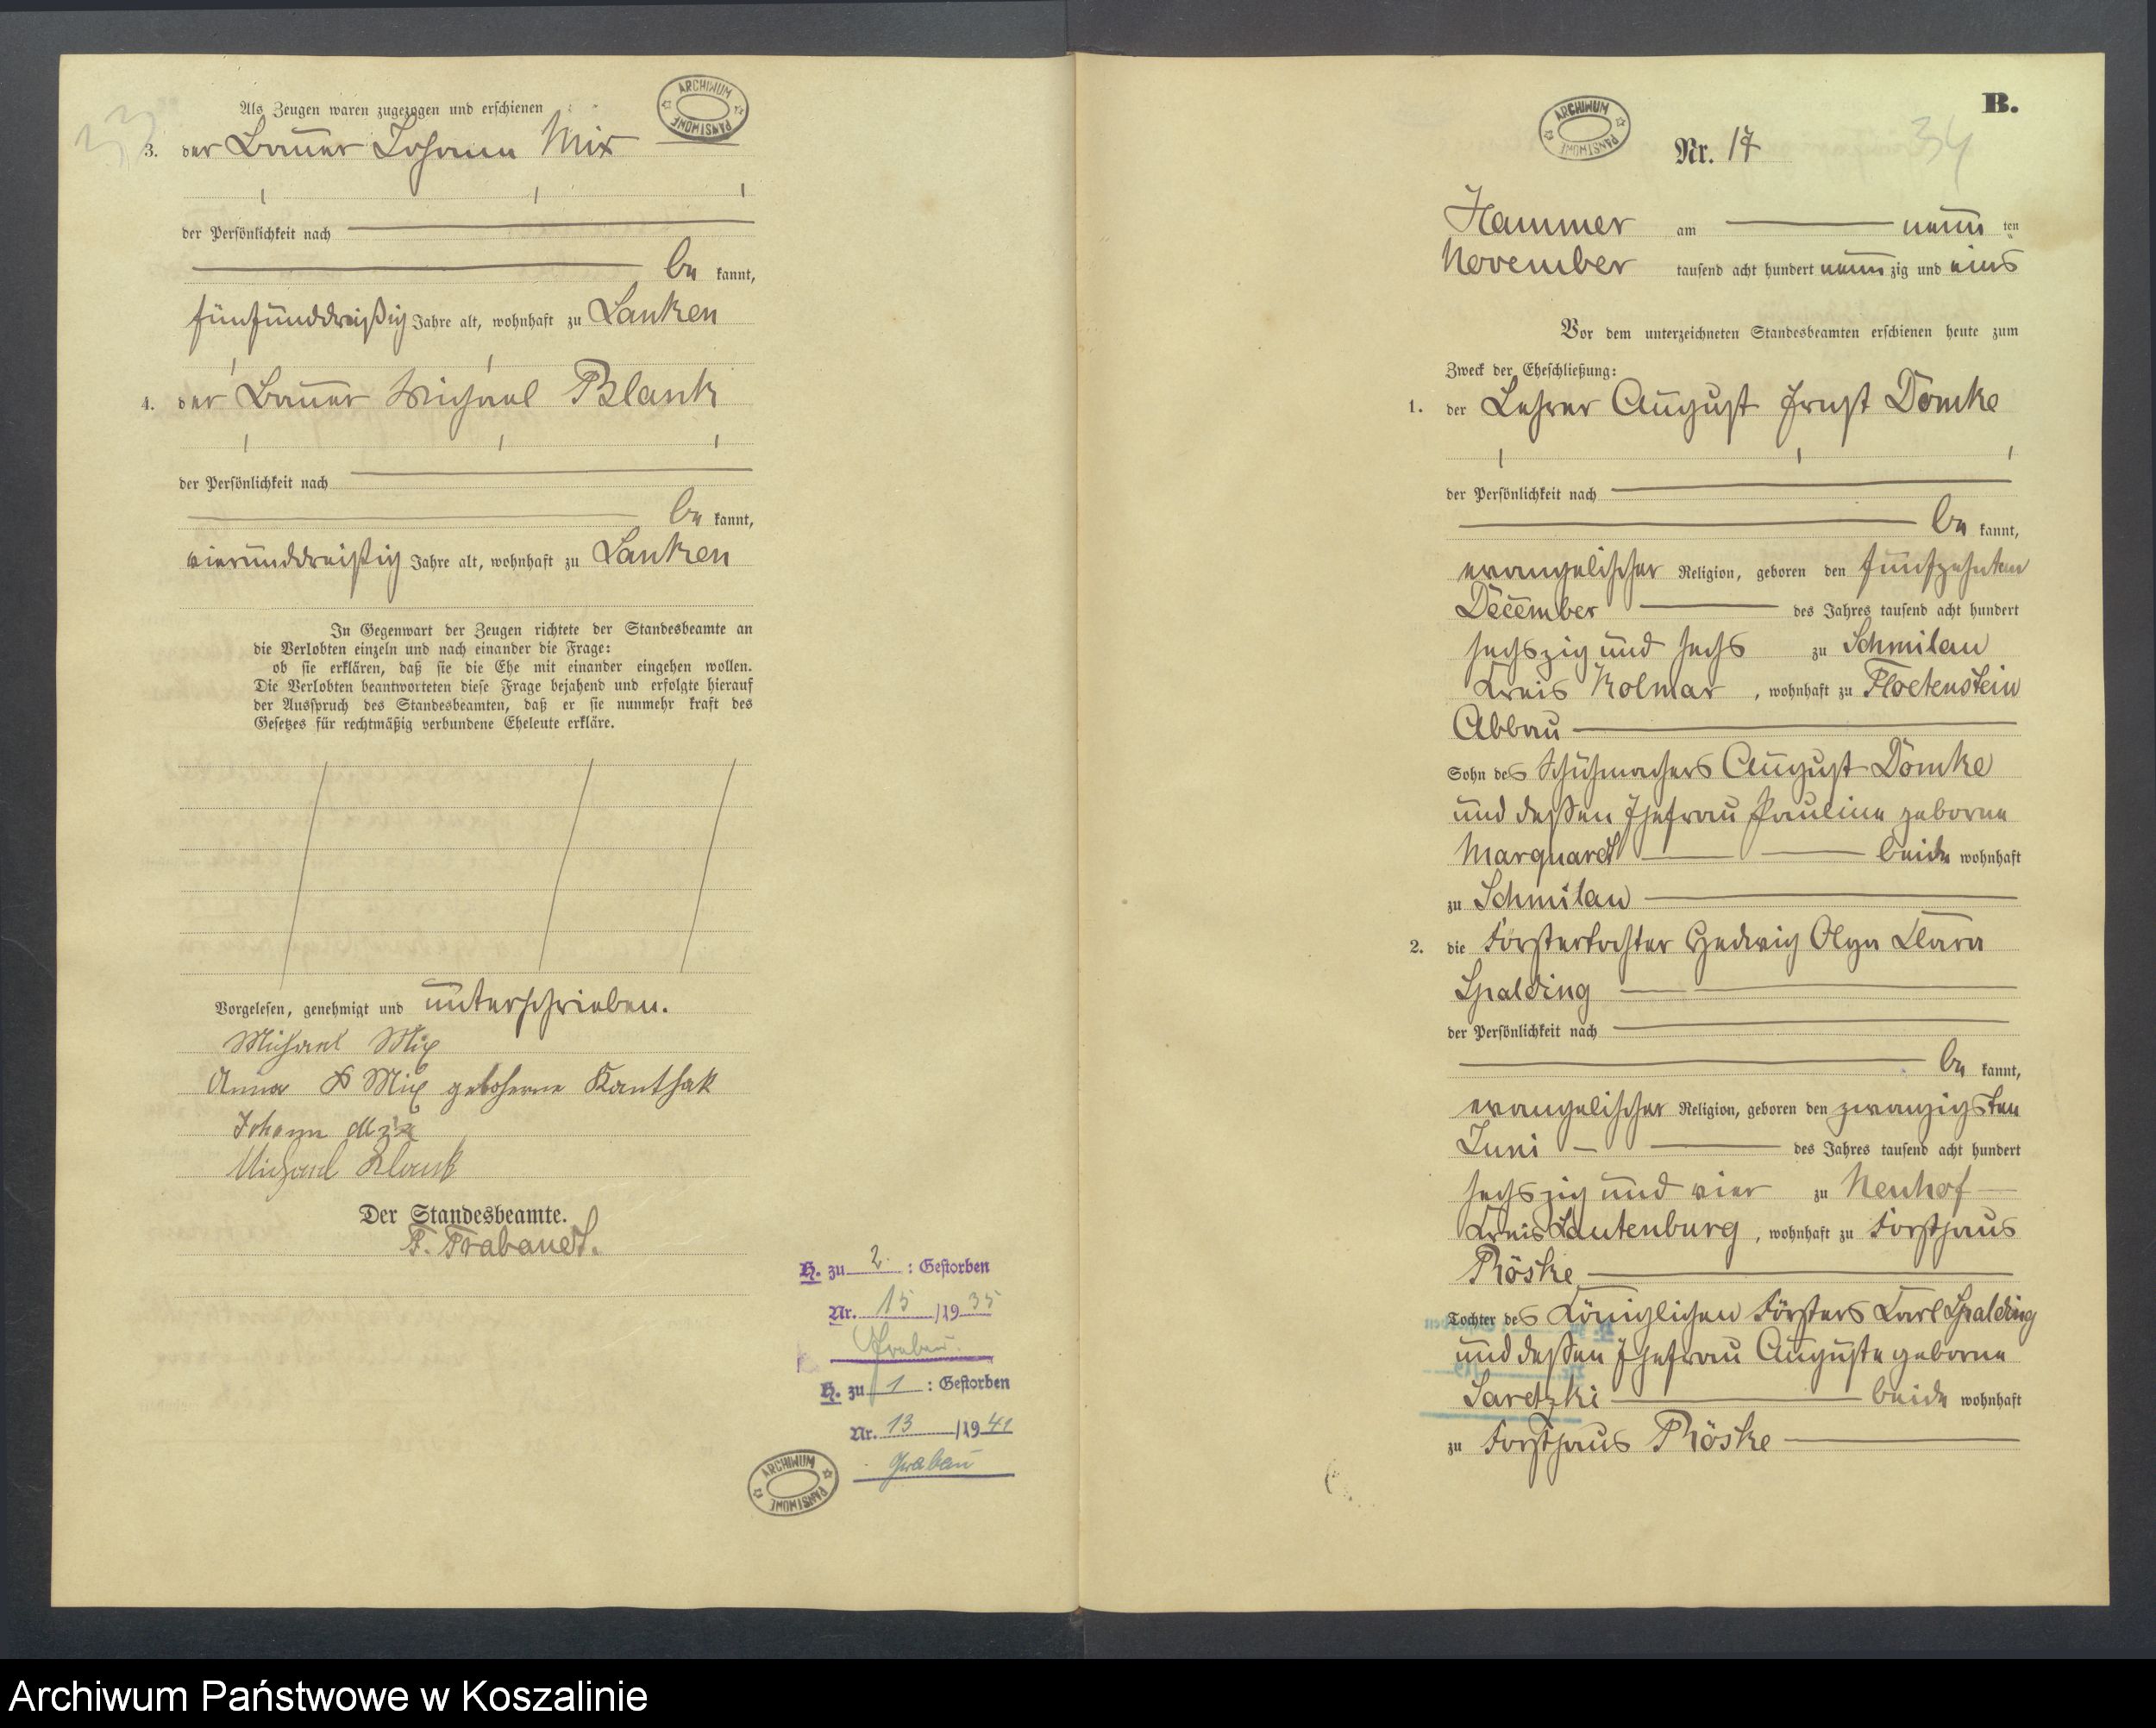 33
Als Zeugen waren zugezogen und erschienen
3. der Bauer Johann Mix
der Persönlichkeit nach
be kannt,
fünfunddreißig Jahre alt, wohnhaft zu Lanken
4. der Bauer Michael Blank
der Persönlichkeit nach
be kannt,
vierunddreißig Jahre alt, wohnhaft zu Lanken
In Gegenwart der Zeugen richtete der Standesbeamte an
die Verlobten einzeln und nach einander die Frage:
ob sie erklären, daß sie die Ehe mit einander eingehen wollen.
Die Verlobten beantworteten diese Frage bejahend und erfolgte hierauf
der Ausspruch des Standesbeamten, daß er sie nunmehr kraft des
Gesetzes für rechtmäßig verbundene Eheleute erkläre.
Vorgelesen, genehmigt und unterschrieben.
Michael Mix
Anna Mix geboherne Kanthak
Johann Mix
Michael Blank
Der Standesbeamte.
F. Trabandt.
H. zu 2 : Gestorben
Nr. 15 /1935
Grabau
H. zu 1 : Gestorben
Nr. 13 /1941
Grabau
ARCHIWUM PAŃSTWOWE
ARCHIWUM PAŃSTWOWE
ARCHIWUM PAŃSTWOWE
B.
Nr. 17
34
Hammer am neun ten
November tausend acht hundert neun zig und eins
Vor dem unterzeichneten Standesbeamten erschienen heute zum
Zweck der Eheschließung:
1. der Lehrer August Ernst Domke
der Persönlichkeit nach
be kannt,
evangelischer Religion, geboren den fünfzehnten
December des Jahres tausend acht hundert
sechszig und sechs zu Schmilau
Kreis Kolmar, wohnhaft zu Floetenstein
Abbau
Sohn des Schuhmachers August Domke
und deßen Ehefrau Pauline geborne
Marquardt beide wohnhaft
zu Schmilau
2. die Förstertochter Hedwig Olga Klara
Spalding
der Persönlichkeit nach
be kannt,
evangelischer Religion, geboren den zwanzigsten
Juni des Jahres tausend acht hundert
sechszig und vier zu Neuhof
Kreis Lautenburg, wohnhaft zu Forsthaus
Röske
Tochter des Königlichen Försters Karl Spalding
und deßen Ehefrau Auguste geborne
Saretzki beide wohnhaft
zu Forsthaus Röske
Archiwum Państwowe w Koszalinie